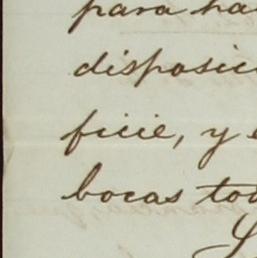 para ha
disposici
ficie, y e
bocas tod